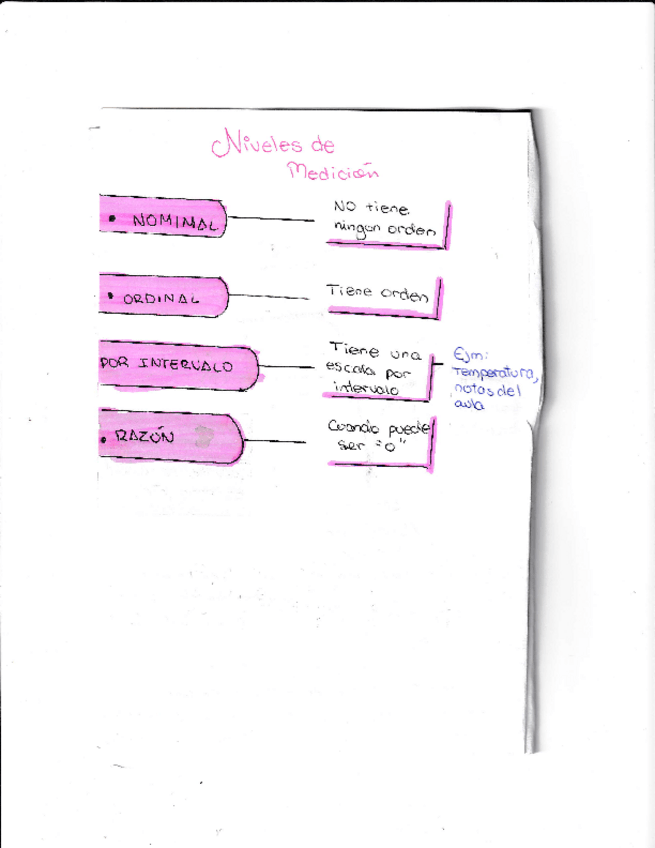 Niveles de
Medición
• NOMINAL
NO tiene
ningun orden
• ORDINAL
Tiene orden
POR INTERVALO
Tiene una
escala por
intervalo
Ejm:
Temperatura,
notas del
aula
• RAZÓN
Cuando puede
ser "0"